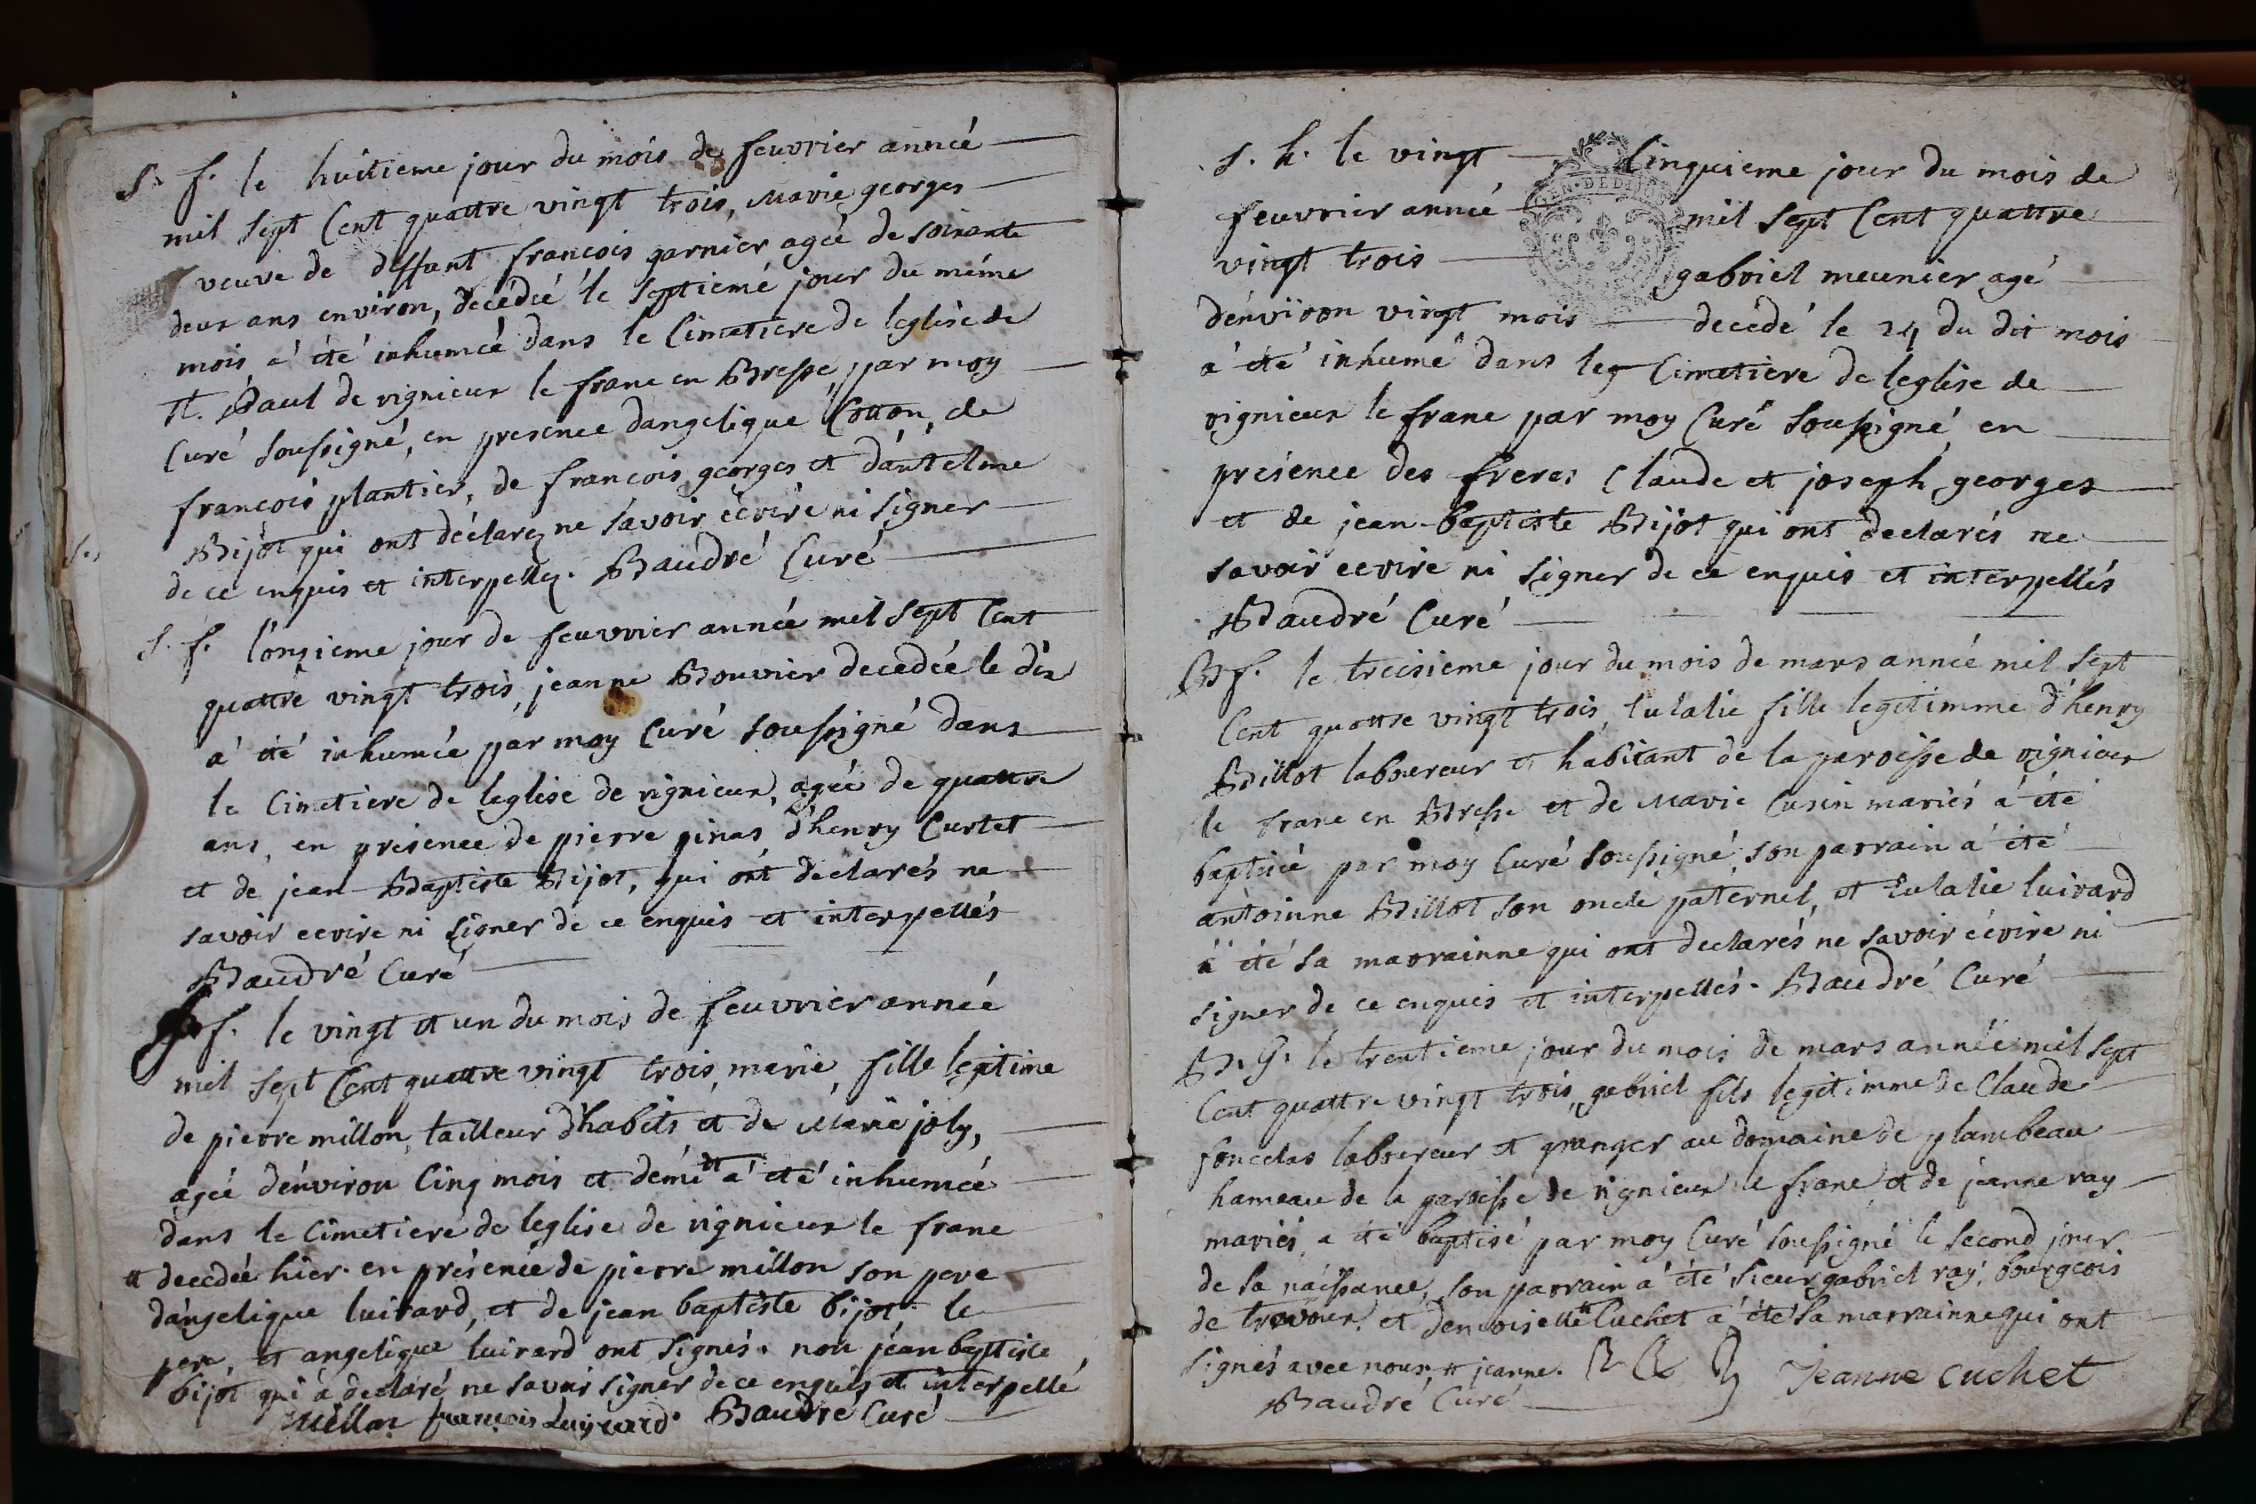 S. f. le huitieme jour du mois de feuvrier année
mil sept Cent quattre vingt trois, Marie georges
veuve de deffunt francois garnier agée de soixante
deux ans environ, decédée le septiemé jour du méme
mois, a été inhumée dans le Cimetiere de leglise de
St. Paul de rignieux le franc en Bresse, par moy
Curé soussigné, en presence dangelique Cotton, de
francois plantier, de francois georges et d'antelme
Bijot qui ont déclarez ne savoir écrire ni signer
de ce enquis et interpellez. Baudré Curé
S. f. l'onzieme jour de feuvrier année mil sept Cent
quattre vingt trois, jeanne Bouvier decedée le dix
a été inhumée par moy Curé soussigné dans
le Cimetiere de leglise de rignieux, agée de quattre
ans, en présence de pierre pinas, d'henry Curtet
et de jean Baptiste Bijot, qui ont declarés ne
savoir ecrire ni signer de ce enquis et interpellés
Baudré Curé
S. f. le vingt et un du mois de feuvrier année
mil sept Cent quattre vingt trois, marie, fille legitime
de pierre millon, tailleur d'habits et de Marie joly,
agée d'environ Cinq mois et démi # a été inhumée
dans le Cimetiere de leglise de rignieux le franc
# decedée hier. en présence de pierre millon son pere
d'angelique luirard, et de jean baptiste bijot. le
pere, et angelique luirard ont signés. non jéan baptiste
bijot qui a declaré ne savoir signer de ce enquis et interpellé
Millon francois Luyrard. Baudré Curé
S. h. le vingt Cinquieme jour du mois de
feuvrier année mil sept Cent quattre
vingt trois gabriel meunier agé
d'énviron vingt mois decédé le 24 du dit mois
a été inhumé dans le Cimetiere de leglise de
rignieux le franc par moy Curé soussigné, en
présence des freres Claude et joseph georges
et de jean-baptiste Bijot qui ont declarés ne
savoir ecrire ni signer de ce enquis et interpellés
Baudré Curé
B f. le treisieme jour du mois de mars année mil sept
Cent quattre vingt trois, Eulalie fille legitimme d'henry
Billot laboureur et habitant de la paroisse de rignieux
le franc en Bresse et de Marie Cusin mariés a été
baptisée par moy Curé soussigné, son parrain a été
antoinne Billot son oncle paternel, et Eulalie luirard
a été sa marrainne qui ont declarés ne savoir écrire ni
signer de ce enquis et interpellés. Baudré Curé
B. G. le trentieme jour du mois de mars année mil sept
Cent quattre vingt trois, gabriel fils legitimme de Claude
foncelas laboureur et granger au domaine de plambeau
hameau de la paroisse de rignieux le franc, et de jeanne ray
mariés, a été baptisé par moy Curé soussigné le second jour
de sa náissance, son parrain a été sieur gabriel ray, bourgeois
de trevoux, et demoiselle # Cuchet a été sa marrainne qui ont
signés avec nous, # jeanne. Jeanne cuchet
Baudré Curé